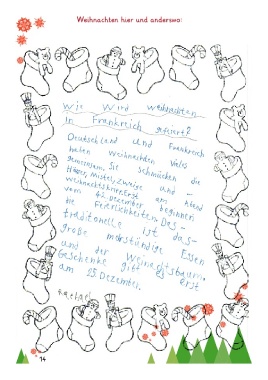 Weihnachten hier und anderswo:
Wie wird weihnachten
In Frankreich gefeiert?
Deutschland und Frankreich
haben weihnachten vieles
gemeinsam. Sie schmücken die
Häuser, Mistel, Zweige und
weihnachtskrone. Erst am Abend
vom 12. Dezember beginnen
die Feierlichkeiten. Das -
traditionelle ist das -
große mehrstündige Essen
und der Weinachtsbaum.
Geschenke gibt es erst
am 25. Dezember.
14